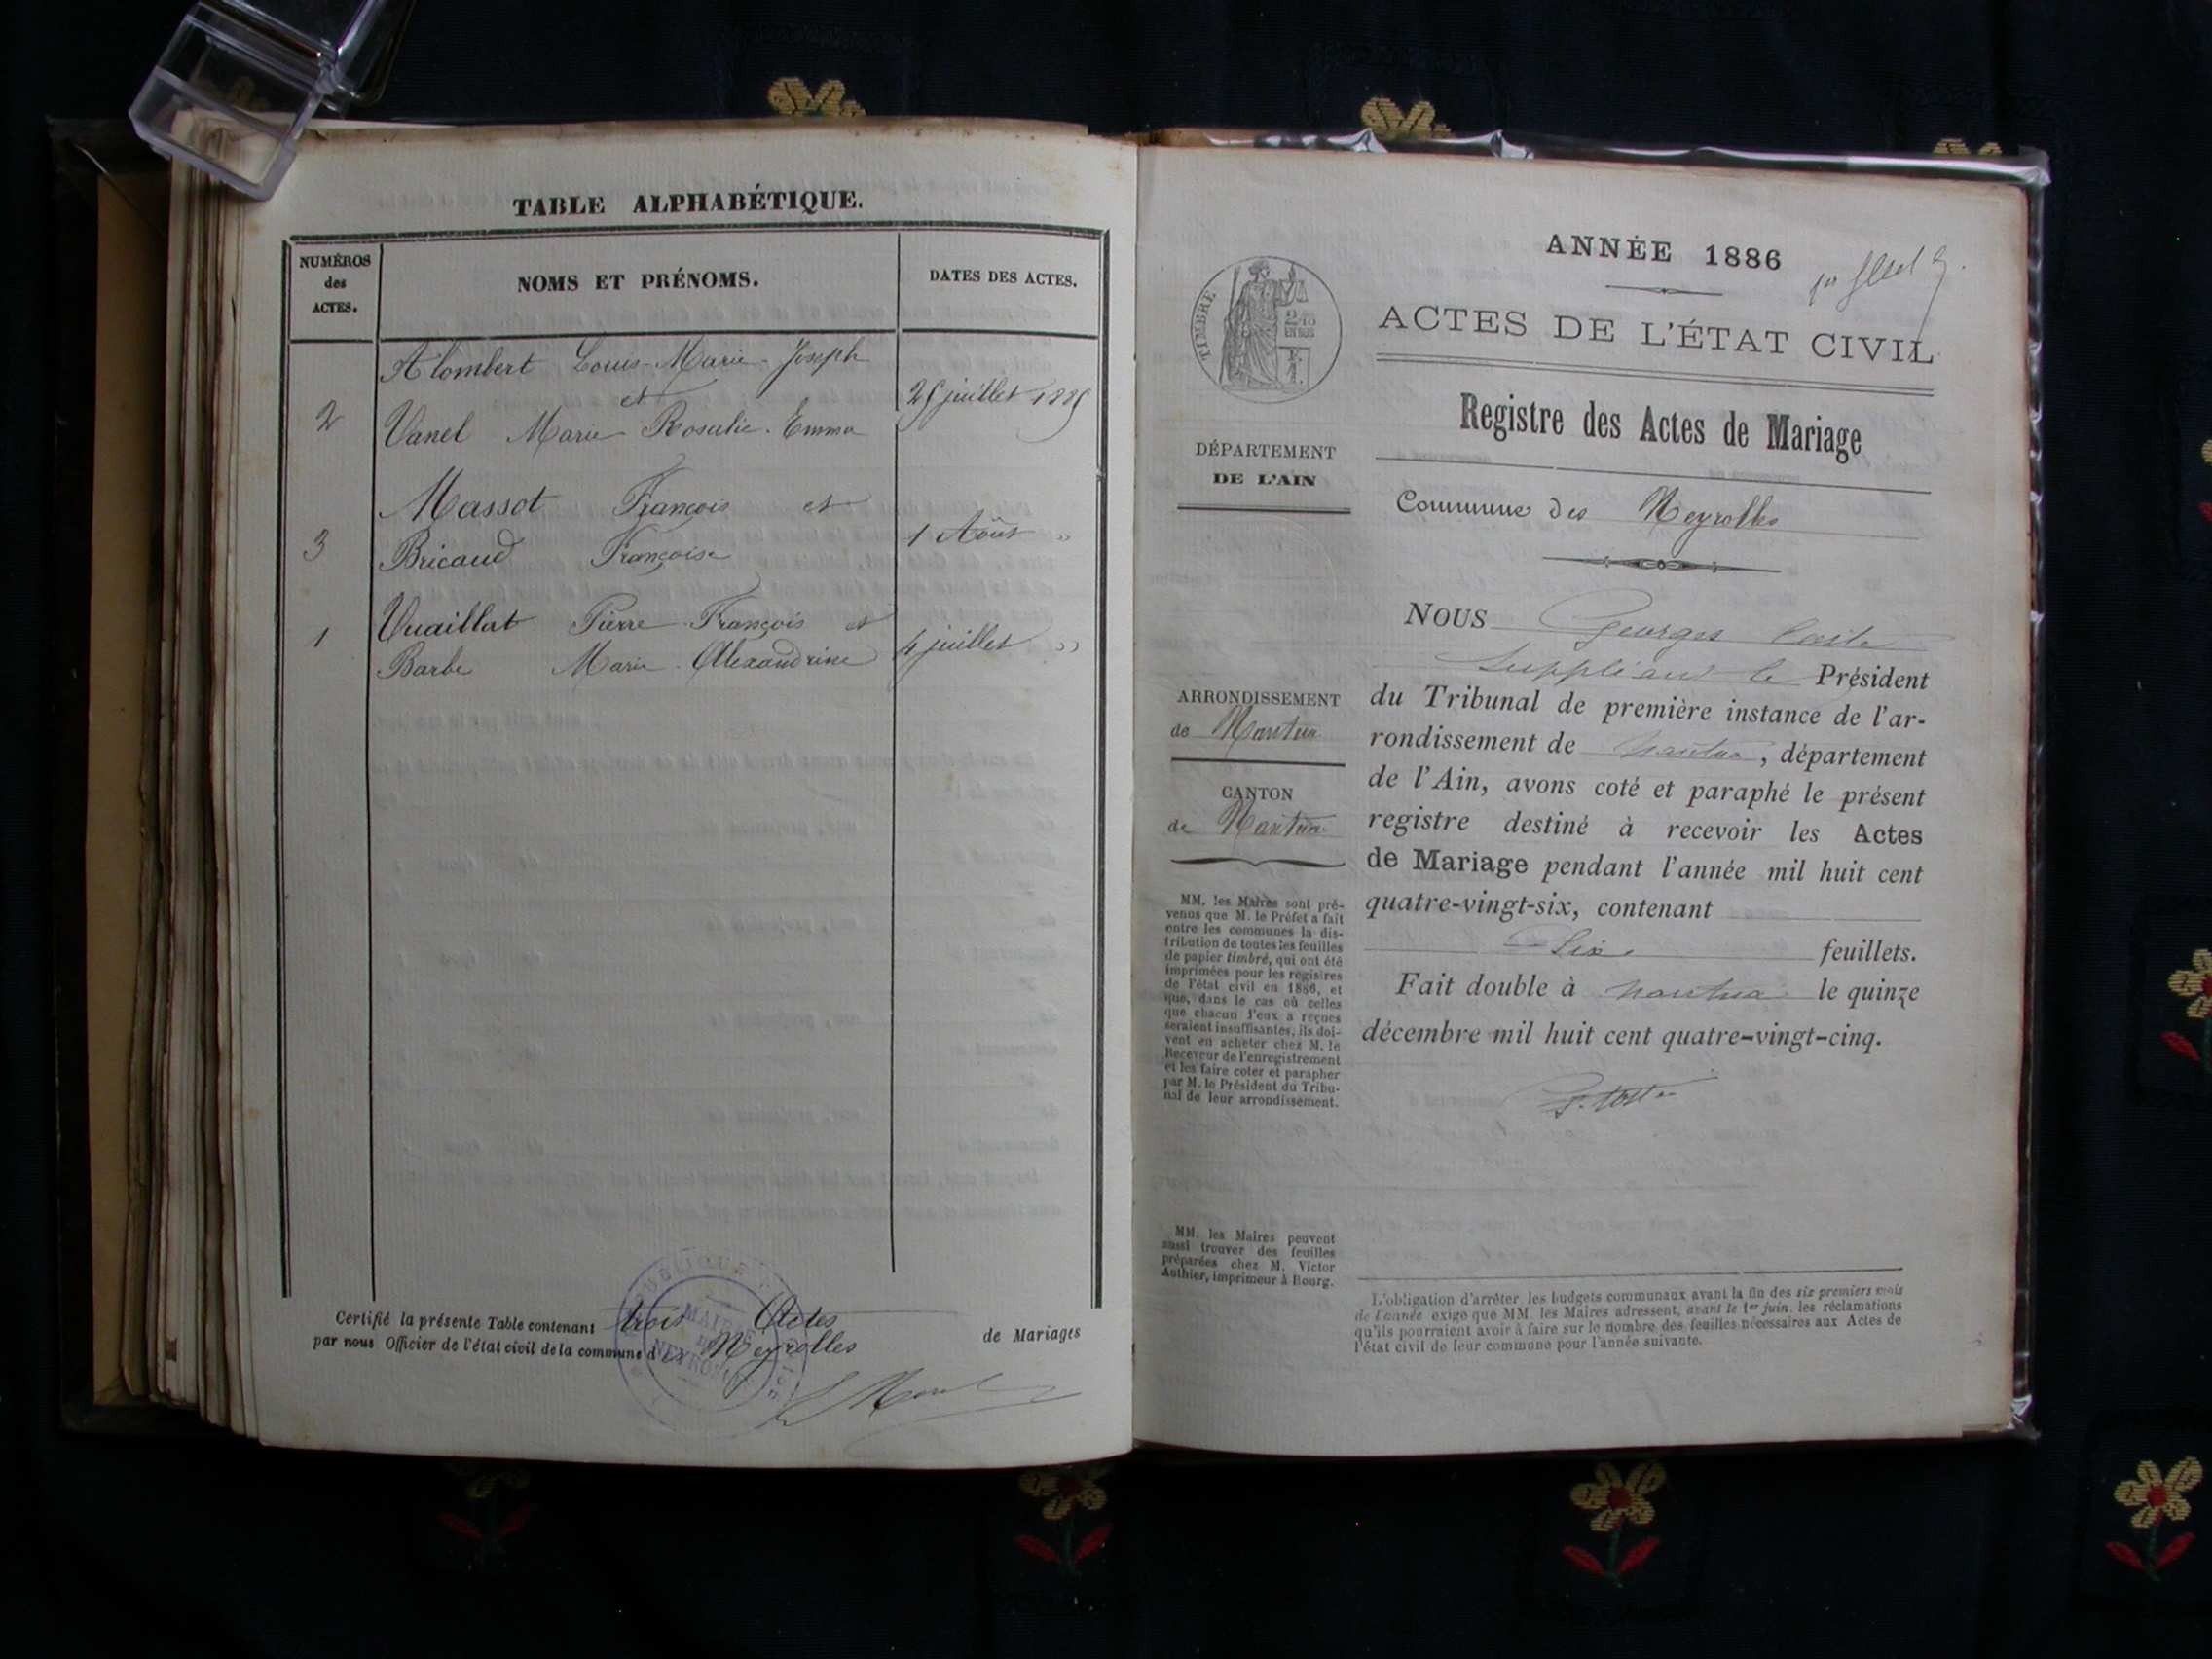 TABLE ALPHABÉTIQUE.
NUMÉROS
des
ACTES.
NOMS ET PRÉNOMS.
DATES DES ACTES.
Alombert Louis-Marie-Joseph
et
2 Vanel Marie-Rosalie-Emma 25 juillet 1885
Massot François et
3 Bricaud Françoise 1 Août "
1 Vuaillat Pierre-François et
Barbe Marie-Alexandrine 4 juillet "
Certifié la présente Table contenant trois Actes de Mariages
par nous Officier de l'état civil de la commune des Neyrolles
ANNÉE 1886
ACTES DE L'ÉTAT CIVIL
TIMBRE
2/10
EN SUS
Registre des Actes de Mariage
DÉPARTEMENT
DE L'AIN
Commune des Neyrolles
NOUS Georges
Suppléant le Président
du Tribunal de première instance de l'ar-
rondissement de Nantua, département
de l'Ain, avons coté et paraphé le présent
registre destiné à recevoir les Actes
de Mariage pendant l'année mil huit cent
quatre-vingt-six, contenant
Six feuillets.
Fait double à Nantua le quinze
décembre mil huit cent quatre-vingt-cinq.
ARRONDISSEMENT
de Nantua
CANTON
de Nantua
MM. les Maires sont pré-
venus que M. le Préfet a fait
entre les communes la dis-
tribution de toutes les feuilles
de papier timbré, qui ont été
imprimées pour les registres
de l'état civil en 1886, et
que, dans le cas où celles
que chacun d'eux a reçues
seraient insuffisantes, ils doi-
vent en acheter chez M. le
Receveur de l'enregistrement
et les faire coter et parapher
par M. le Président du Tribu-
nal de leur arrondissement.
MM. les Maires peuvent
aussi trouver des feuilles
préparées chez M. Victor
Authier, imprimeur à Bourg.
L'obligation d'arrêter les budgets communaux avant la fin des six premiers mois
de l'année exige que MM. les Maires adressent, avant le 1er juin, les réclamations
qu'ils pourraient avoir à faire sur le nombre des feuilles nécessaires aux Actes de
l'état civil de leur commune pour l'année suivante.